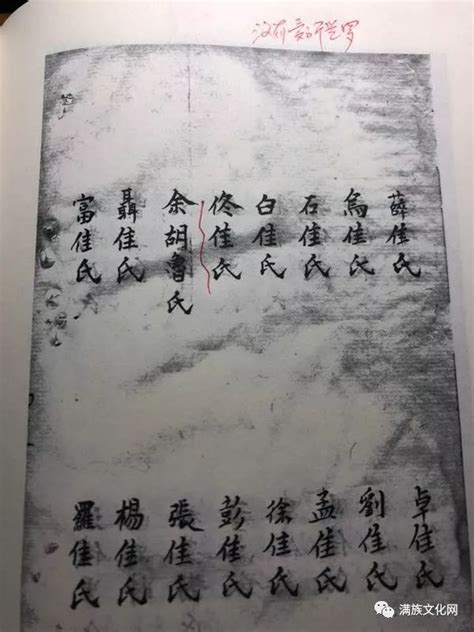 没有爱新觉罗
薛佳氏
烏佳氏
石佳氏
白佳氏
佟佳氏
余胡魯氏
聶佳氏
富佳氏
卓佳氏
劉佳氏
孟佳氏
徐佳氏
彭佳氏
張佳氏
楊佳氏
羅佳氏
满族文化网